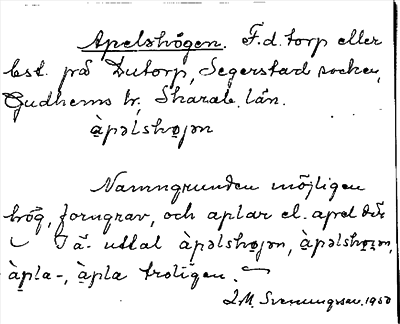 Apelshögen. F.d. torp eller
best. på Dutorp, Segerstad socken,
Gudhems hr, Skarab. län.
àpəlshøjən
Namngrunden möjligen
hög, forngrav, och aplar el. apel där
I ä- uttal àpəlshøjən, àpəlshøjən,
àpla-, àpla troligen.
J.M. Svennungsson. 1950